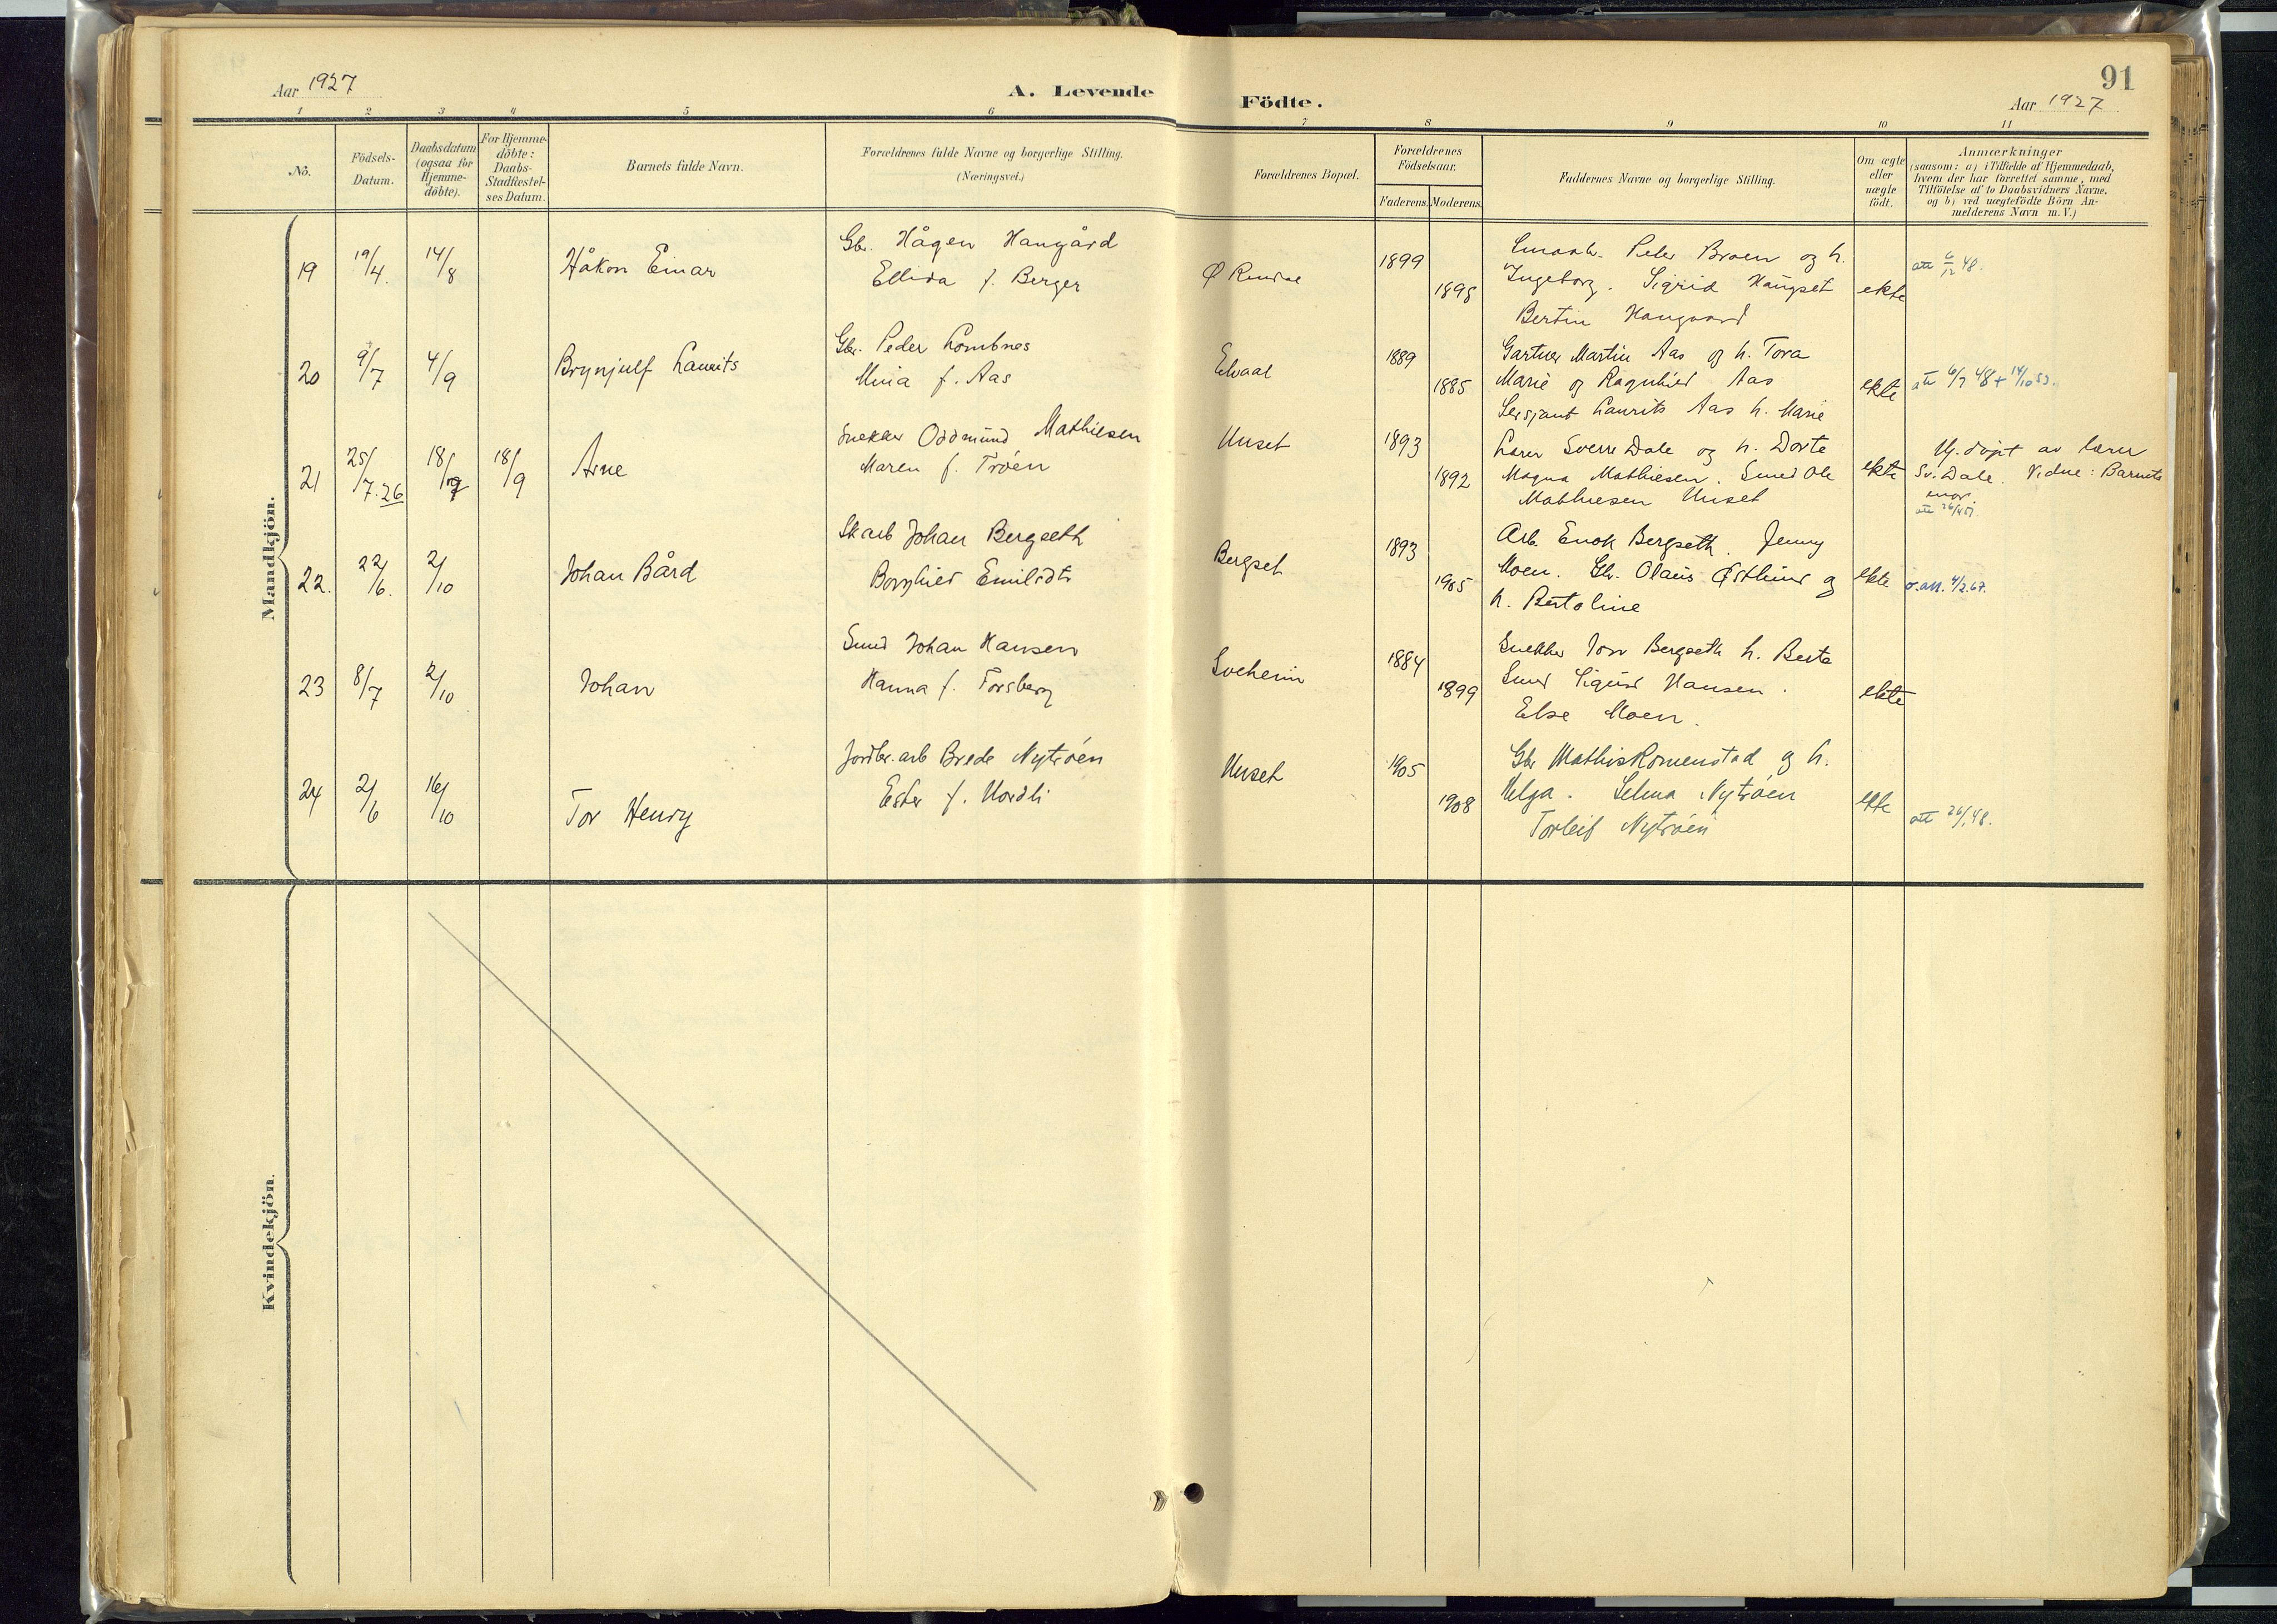 91
Aar 1927
A. Levende Födte.
Aar 1927
1 2 3 4 5 6 7 8 9 10 11
No.
Födsels-
Datum.
Daabsdatum
(ogsaa for
Hjemme-
döbte).
For Hjemme-
döbte:
Daabs-
Stadfæstel-
ses Datum.
Barnets fulde Navn.
Forældrenes fulde Navne og borgerlige Stilling.
(Næringsvei.)
Forældrenes Bopæl.
Forældrenes
Födselsaar.
Faderens. Moderens.
Faddernes Navne og borgerlige Stilling.
Om ægte
eller
uægte
födt.
Anmærkninger
(saasom: a) i Tilfælde af Hjemmedaab,
hvem der har forrettet samme, med
Tilföielse af to Daabsvidners Navne,
og b) ved uægtefödte Börn An-
melderens Navn m.V.)
Mandkjön.
19 19/4. 14/8 Håkon Einar
Gbr. Hågen Haugård
Ellida f. Berger
Ø Rendal 1899 1898
Peder Broen og h.
Ingeborg. Sigrid Haugset
Bertin Haugaard
ekte
att 6/12 48.
20 9/7 4/9 Brynjulf Laurits
Gbr. Peder Lombnes
f. Aas
Elvaal 1889 1885
Gartner Martin Aas og h. Tora
Marie og Ragnhild Aas
Sersjant Laurits Aas h. Marie
ekte
att 6/7 48 + 14/10 53.
21 25/7.26 18/9 18/9 Arne
Snekker Oddmund Mathiesen
Maren f. Trøen
Unset 1893 1892
Lærer Sverre Dale og h. Dorte
Magna Mathiesen. Smed Ole
Mathiesen Unset
ekte
Hj. døpt av lærer
Sv. Dale. Vidne: Barnets
mor.
22. 22/6. 2/10 Johan Bård
Sk arb Johan Bergseth
Borghild Emilsdtr
Bergset 1893 1905
Arb. Enok Bergseth. Jenny
Moen. Gbr. Olaus Østlund og
h. Bertoline
ekte
o.att. 4/2.67.
23 8/7 2/10 Johan
Smed Johan Hansen
Hanna f. Forsberg
Solheim 1884 1899
Snekker Jon Bergseth h. Berte
Smed Sigurd Hansen.
Else Moen.
ekte
24 2/6 16/10 Tor Henry
Jordbr. arb Brede Nytrøen
Ester f. Nordli
Unset 1905 1908
Gbr Mathis Romenstad og h.
Helga. Selma Nytrøen
Torleif Nytrøen
ekte
att 26/1 48.
Kvindekjön.